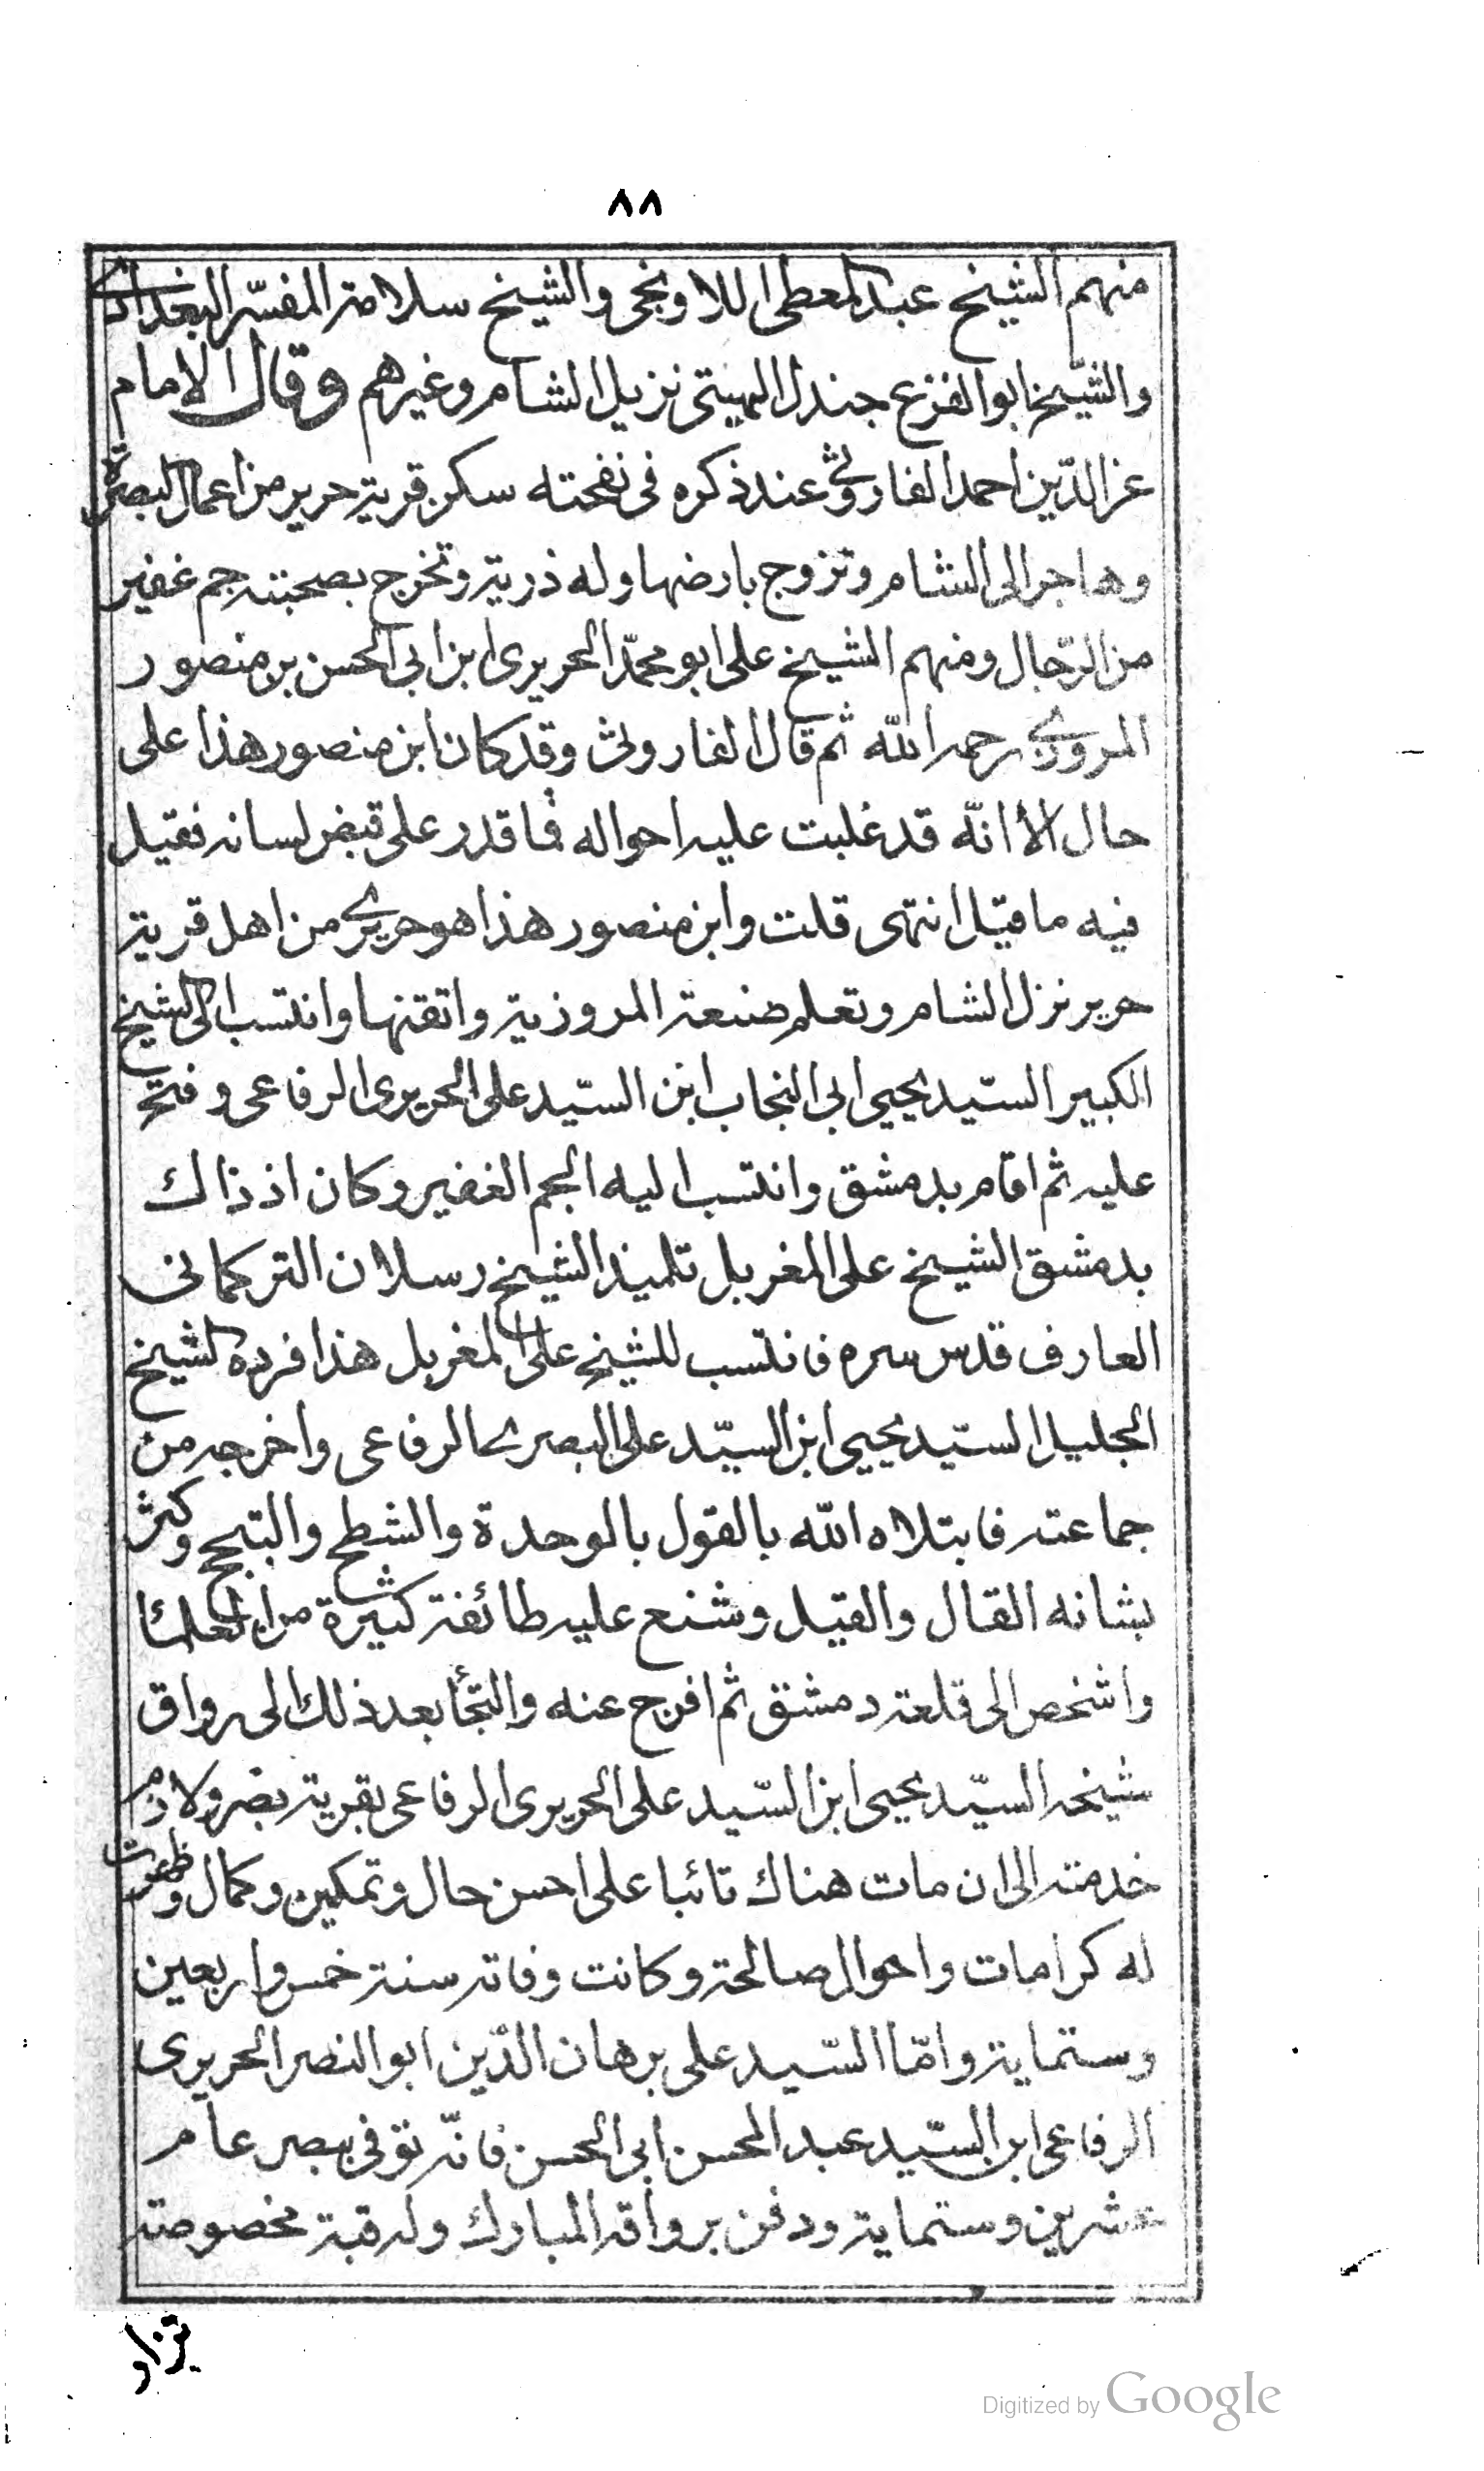 ٨٨
منهم الشيخ عبد المعطى اللاونجى والشيخ سلامة المفسّر البغدادى
والشيخ ابو الفزع جندل الهيتى نزيل الشام وغيرهم وقال الامام
عز الدّين احمد الفاروثى عند ذكره فى نفحته سكن قرية حرير من اعمال البصرة
وهاجر الى الشام وتزوج بارضها وله ذرية وتخرج بصحبته جم غفير
من الرّجال ومنهم الشيخ على ابو محمّد الحريرى ابن ابى الحسن بن منصور
المروزى رحمه اللّه ثم قال الفاروثى وقد كان ابن منصور هذا على
حال الّا انّه قد غلبت عليه احواله فما قدر على قبض لسانه فقيل
فيه ما قيل انتهى قلت وابن منصور هذا هو حريرى من اهل قرية
حرير نزل الشام وتعلم صنعة المروزية واتقنها وانتسب الى الشيخ
الكبير السّيد يحيى ابى النجاب ابن السّيد على الحريرى الرفاعى وفتح
عليه ثم اقام بدمشق وانتسب اليه الجم الغفير وكان اذ ذاك
بدمشق الشيخ على المغربل تلميذ الشيخ رسلان التركمانى
العارف قدس سره فانتسب للشيخ على المغربل هذا فرده الشيخ
الجليل السّيد يحيى ابن السيّد على البصرى الرفاعى واخرجه من
جماعته فابتلاه اللّه بالقول بالوحدة والشطح والتبجح وكثر
بشانه القال والقيل وشنع عليه طائفة كثيرة من العلمآ
واشخص الى قلعة دمشق ثم افرج عنه والتجأ بعد ذلك الى رواق
شيخه السيّد يحيى ابن السّيد على الحريرى الرفاعى بقرية بصر ولازم
خدمته الى ان مات هناك تائبا على احسن حال وتمكين وكمال وظهرت
له كرامات واحوال صالحة وكانت وفاته سنة خمس واربعين
وستماية وامّا السّيد على برهان الدّين ابو النصر الحريرى
الرفاعى ابن السّيد عبد المحسن ابى الحسن فانّه توفى ببصر عام
عشرين وستماية ودفن برواقه المبارك وله قبة مخصوصة
تزار
Digitized by Google